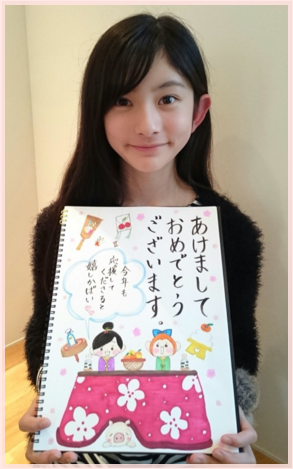 あけまして
おめでとう
ございます。
今年も
応援して
くださると
嬉しかばい